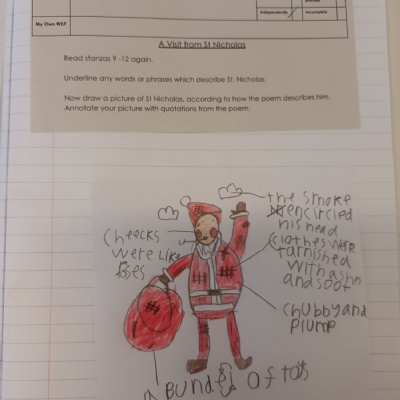 Independently
Incomplete
My Own WILF
A Visit from St Nicholas
Read stanzas 9 -12 again.
Underline any words or phrases which describe St. Nicholas.
Now draw a picture of St Nicholas, according to how the poem describes him.
Annotate your picture with quotations from the poem.
the smoke
encircled
his head
Cheecks
were like
clothes were
tarnished
with ashes
and soot
chubby and
plump
a Bundel of